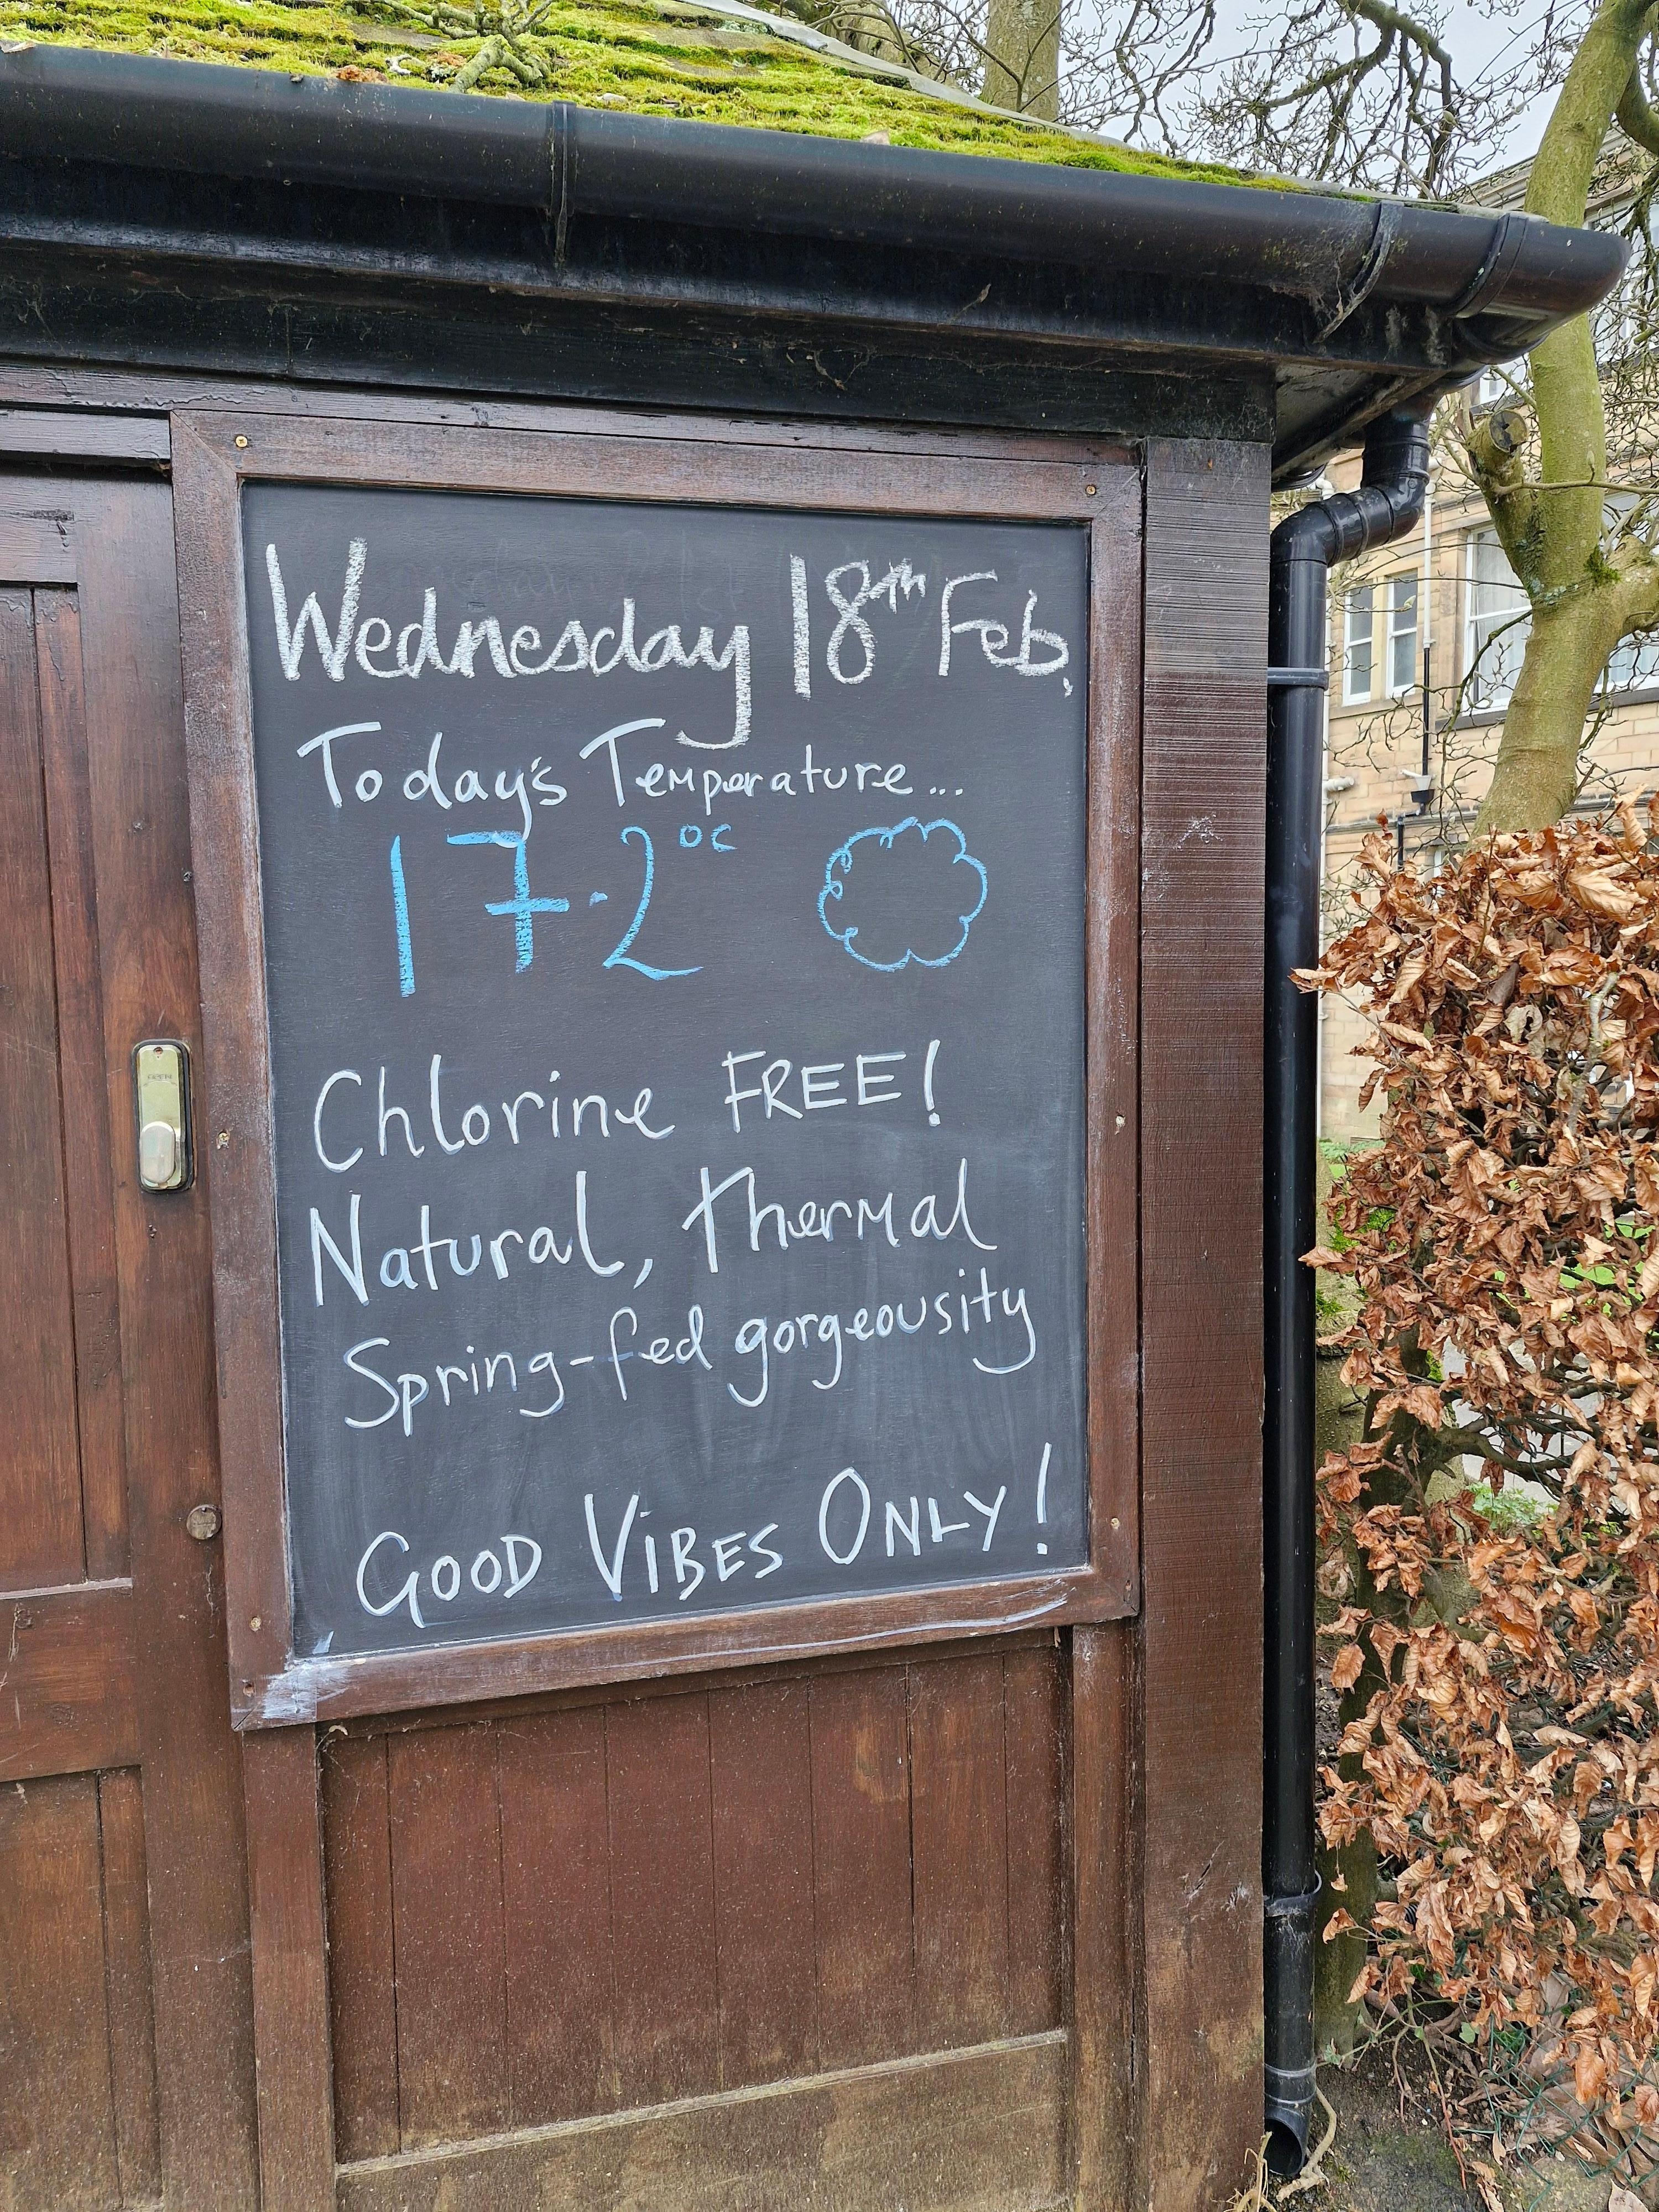 Wednesday 18th Feb,
Today's Temperature...
17.2 °C
Chlorine FREE!
Natural, thermal
Spring-fed gorgeousity
GOOD VIBES ONLY!